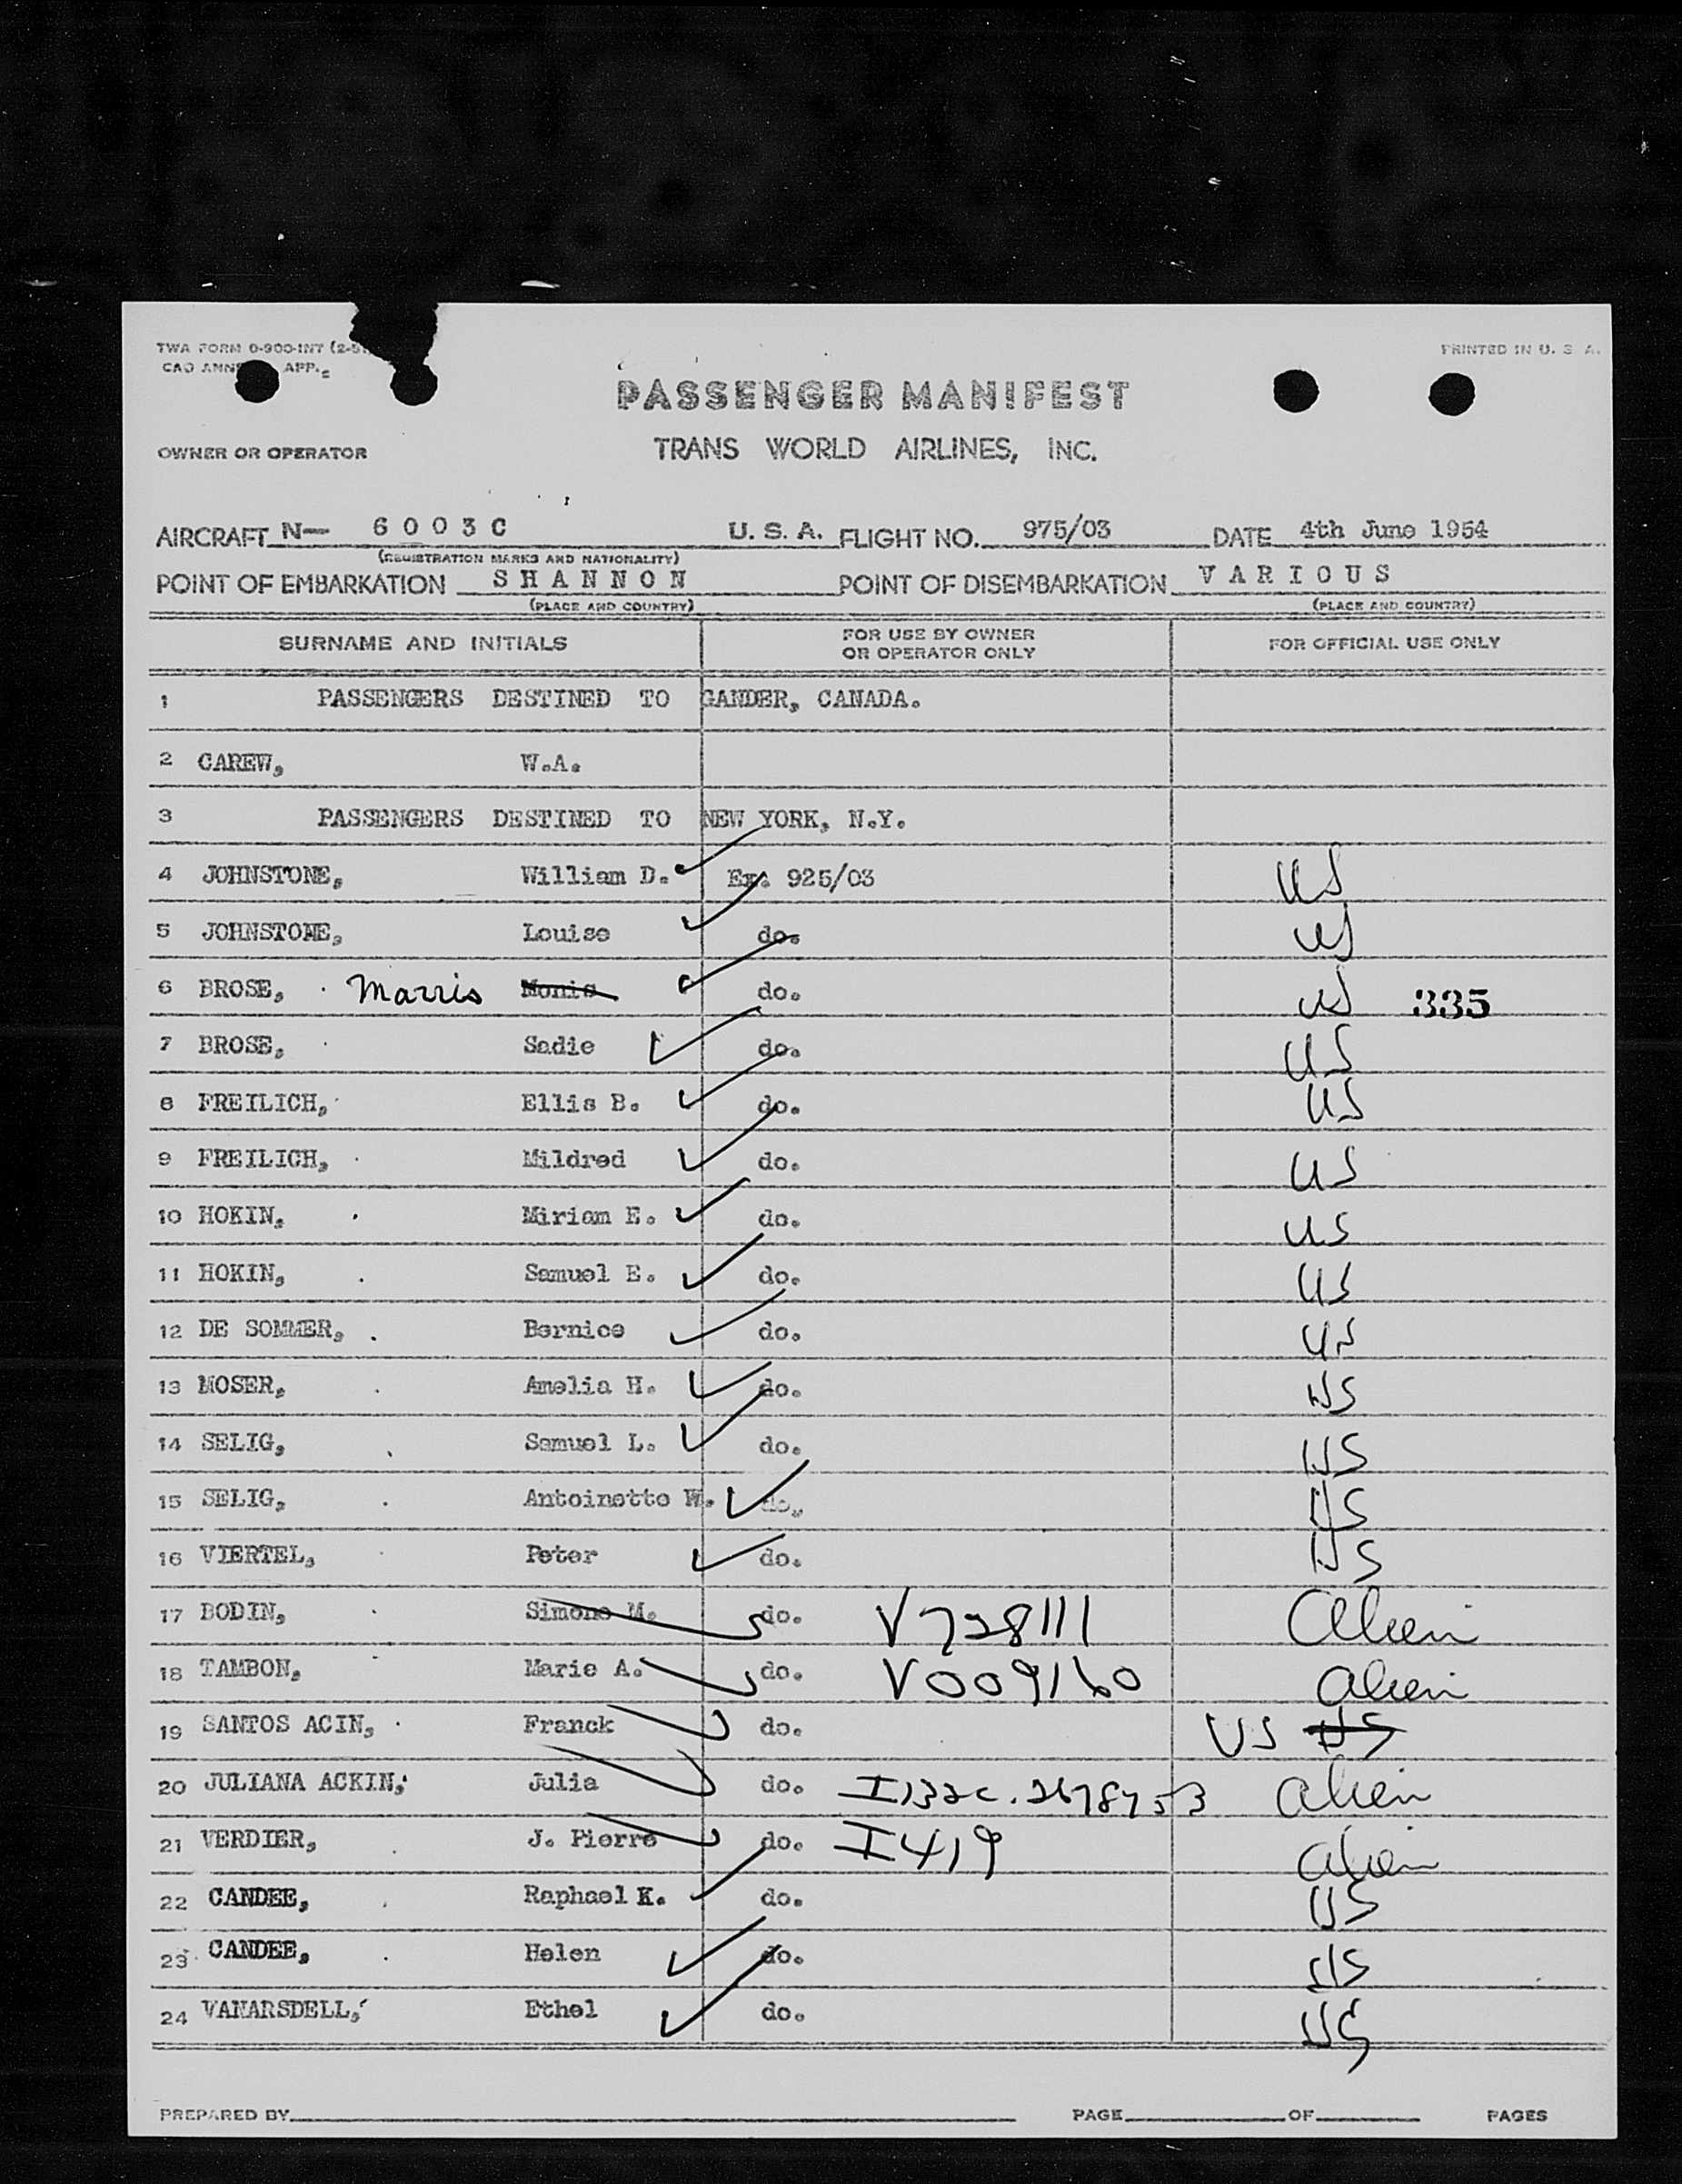 TWA FORM 0-900-INT (2-5
PRINTED IN U. S. A.
APP.
PASSENGER MANIFEST
OWNER OR OPERATOR TRANS WORLD AIRLINES, INC.
AIRCRAFT N— 6 0 0 3 C U. S. A. FLIGHT NO. 975/03 DATE 4th June 1954
(REGISTRATION MARKS AND NATIONALITY)
POINT OF EMBARKATION S H A N N O N POINT OF DISEMBARKATION V A R I O U S
(PLACE AND COUNTRY) (PLACE AND COUNTRY)
SURNAME AND INITIALS FOR USE BY OWNER OR OPERATOR ONLY FOR OFFICIAL USE ONLY
1 PASSENGERS DESTINED TO GANDER, CANADA.
2 CAREW, W.A.
3 PASSENGERS DESTINED TO NEW YORK, N.Y.
4 JOHNSTONE, William D. Ex. 925/03 US
5 JOHNSTONE, Louise do. US
6 BROSE, Morris Monis do. US 335
7 BROSE, Sadie do. US
8 FREILICH, Ellis B. do. US
9 FREILICH, Mildred do. US
10 HOKIN, Miriam E. do. US
11 HOKIN, Samuel E. do. US
12 DE SOMMER, Bernice do. US
13 MOSER, Amelia H. do. US
14 SELIG, Samuel L. do. US
15 SELIG, Antoinette W. do. US
16 VIERTEL, Peter do. US
17 BODIN, Simone M. do. V728111 Alien
18 TAMBON, Marie A. do. V009160 Alien
19 SANTOS ACIN, Franck do. US US
20 JULIANA ACKIN, Julia do. Alien
21 VERDIER, J. Pierre do. I419 Alien
22 CANDEE, Raphael K. do. US
23 CANDEE, Helen do. US
24 VANARSDELL, Ethel do. US
PREPARED BY PAGE OF PAGES